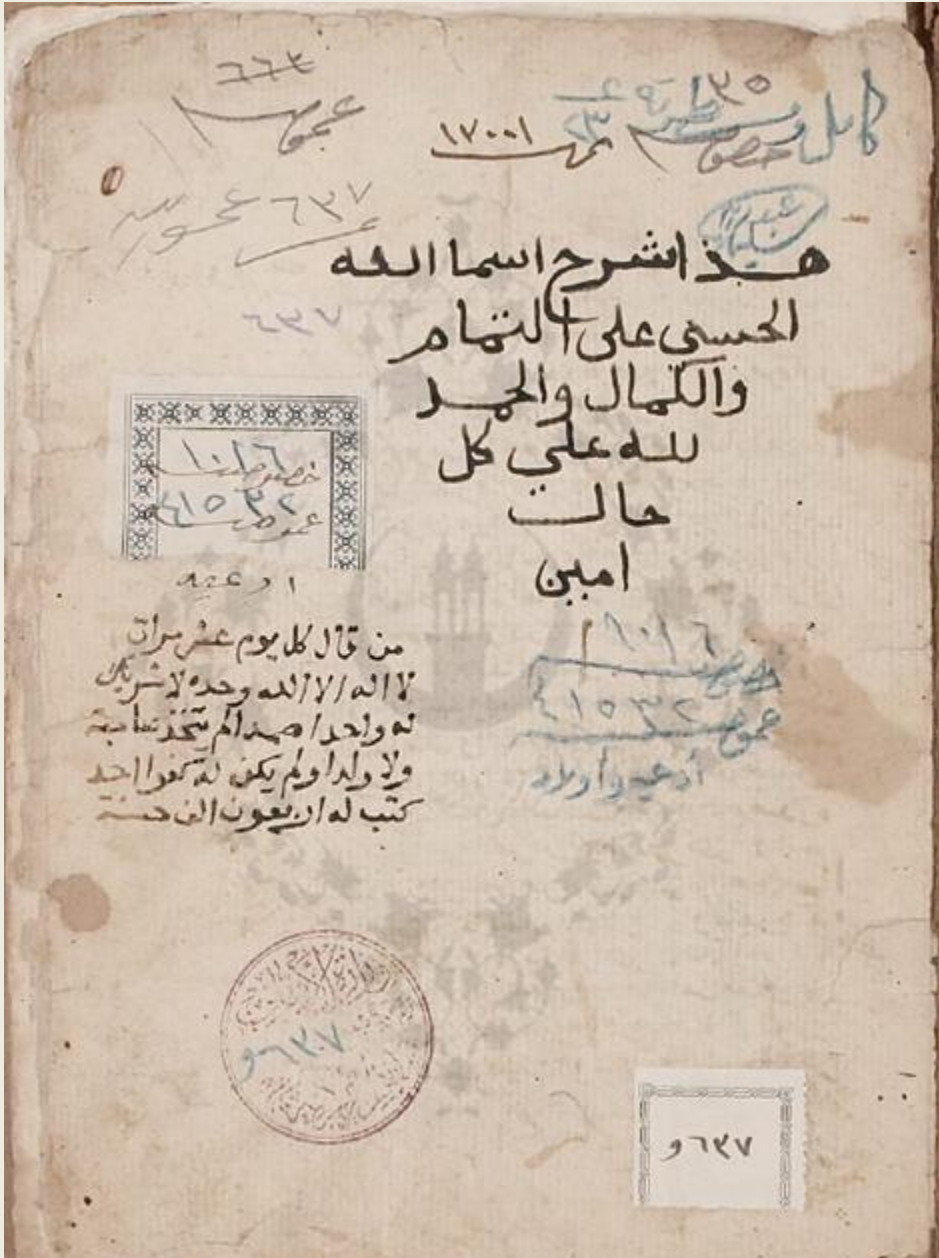 ٦٦٣
عمومية
٣٥
كامل
خصوصية
نمرة ١٧٠٠١
٦٣٧
هذا شرح اسما الله
الحسنى على التمام
والكمال والحمد
لله على كل
حالت
امين
٦٣٧
خصوصية ١٠١٦
عمومية ٤١٥٣٢
ادعيه
من قال كل يوم عشر مرات
لا اله الا الله وحده لا شريك
له واحدا صمدا لم يتخذ صاحبة
ولا ولدا ولم يكن له كفوا احد
كتب له اربعون الف حسنة
١٠١٦
خصوصية
٤١٥٣٢
عمومية
أدعيه وأوراد
٦٣٧ و
٦٣٧ و